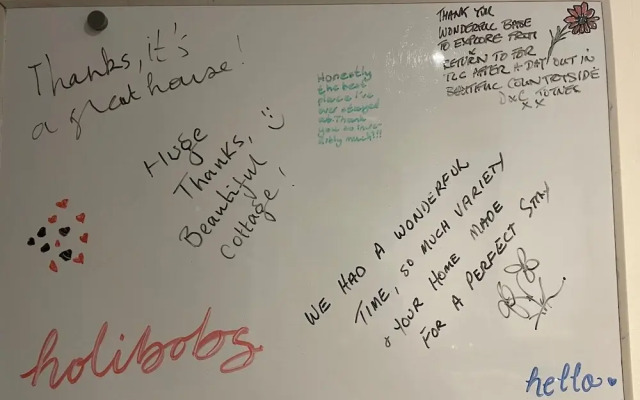 Thanks, it's
a great house!
THANK YOU
WONDERFUL BASE
TO EXPLORE FROM
& RETURN TO FOR
TLC AFTER A DAY OUT IN
BEAUTIFUL COUNTRYSIDE
D x C
x x
Honestly
the best
place I've
ever stayed
at. Thank
you so
much!!!
Huge
Thanks,
Beautiful
Cottage!
WE HAD A WONDERFUL
TIME, SO MUCH VARIETY
& YOUR HOME MADE
FOR A PERFECT STAY
holibobs
hello